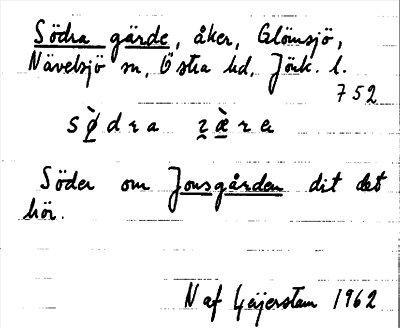 Södra gärde, åker, Glömsjö,
Nävelsjö sn, Östra hd, Jönk. l.
752
sø̀dra ɀæ̀re
Söder om Jonsgården dit det
hör.
N af Geijerstam 1962